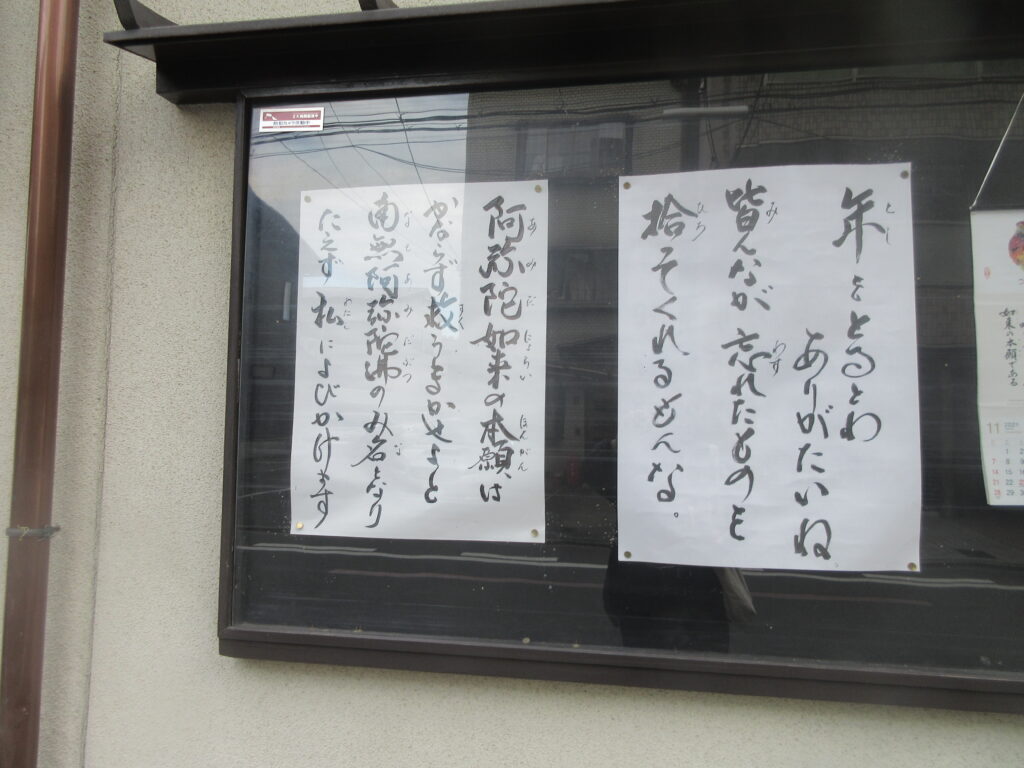 年をとるとわ
ありがたいね
皆んなが忘れたものを
拾てくれるもんな。
阿弥陀如来の本願は
かならず救うまかせよと
南無阿弥陀佛のみ名となり
たえず私によびかけます
如来の本願である
11
防犯カメラ作動中